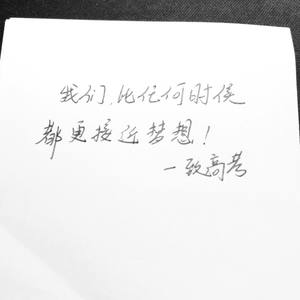 我们,比任何时侯
都更接近梦想!
一致高考